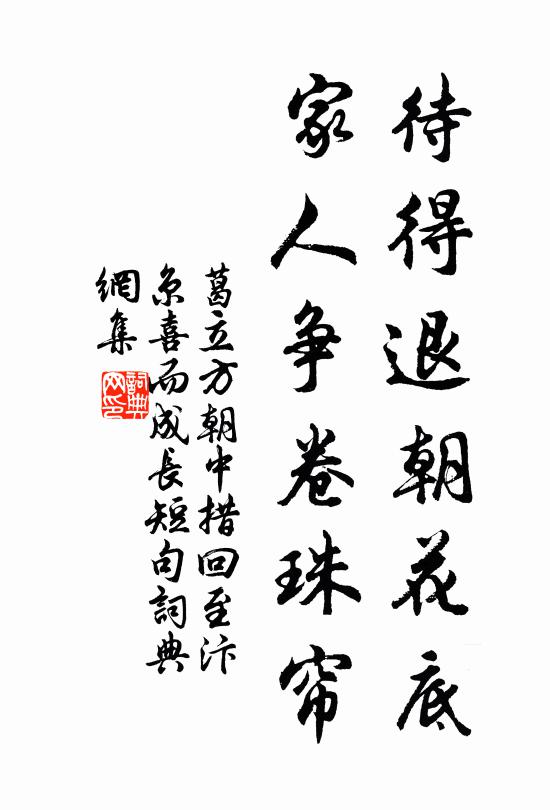 待得退朝花底
家人争卷珠帘
葛立方朝中措回至汴
京喜而成長短句詞典
網集
詞典
网印